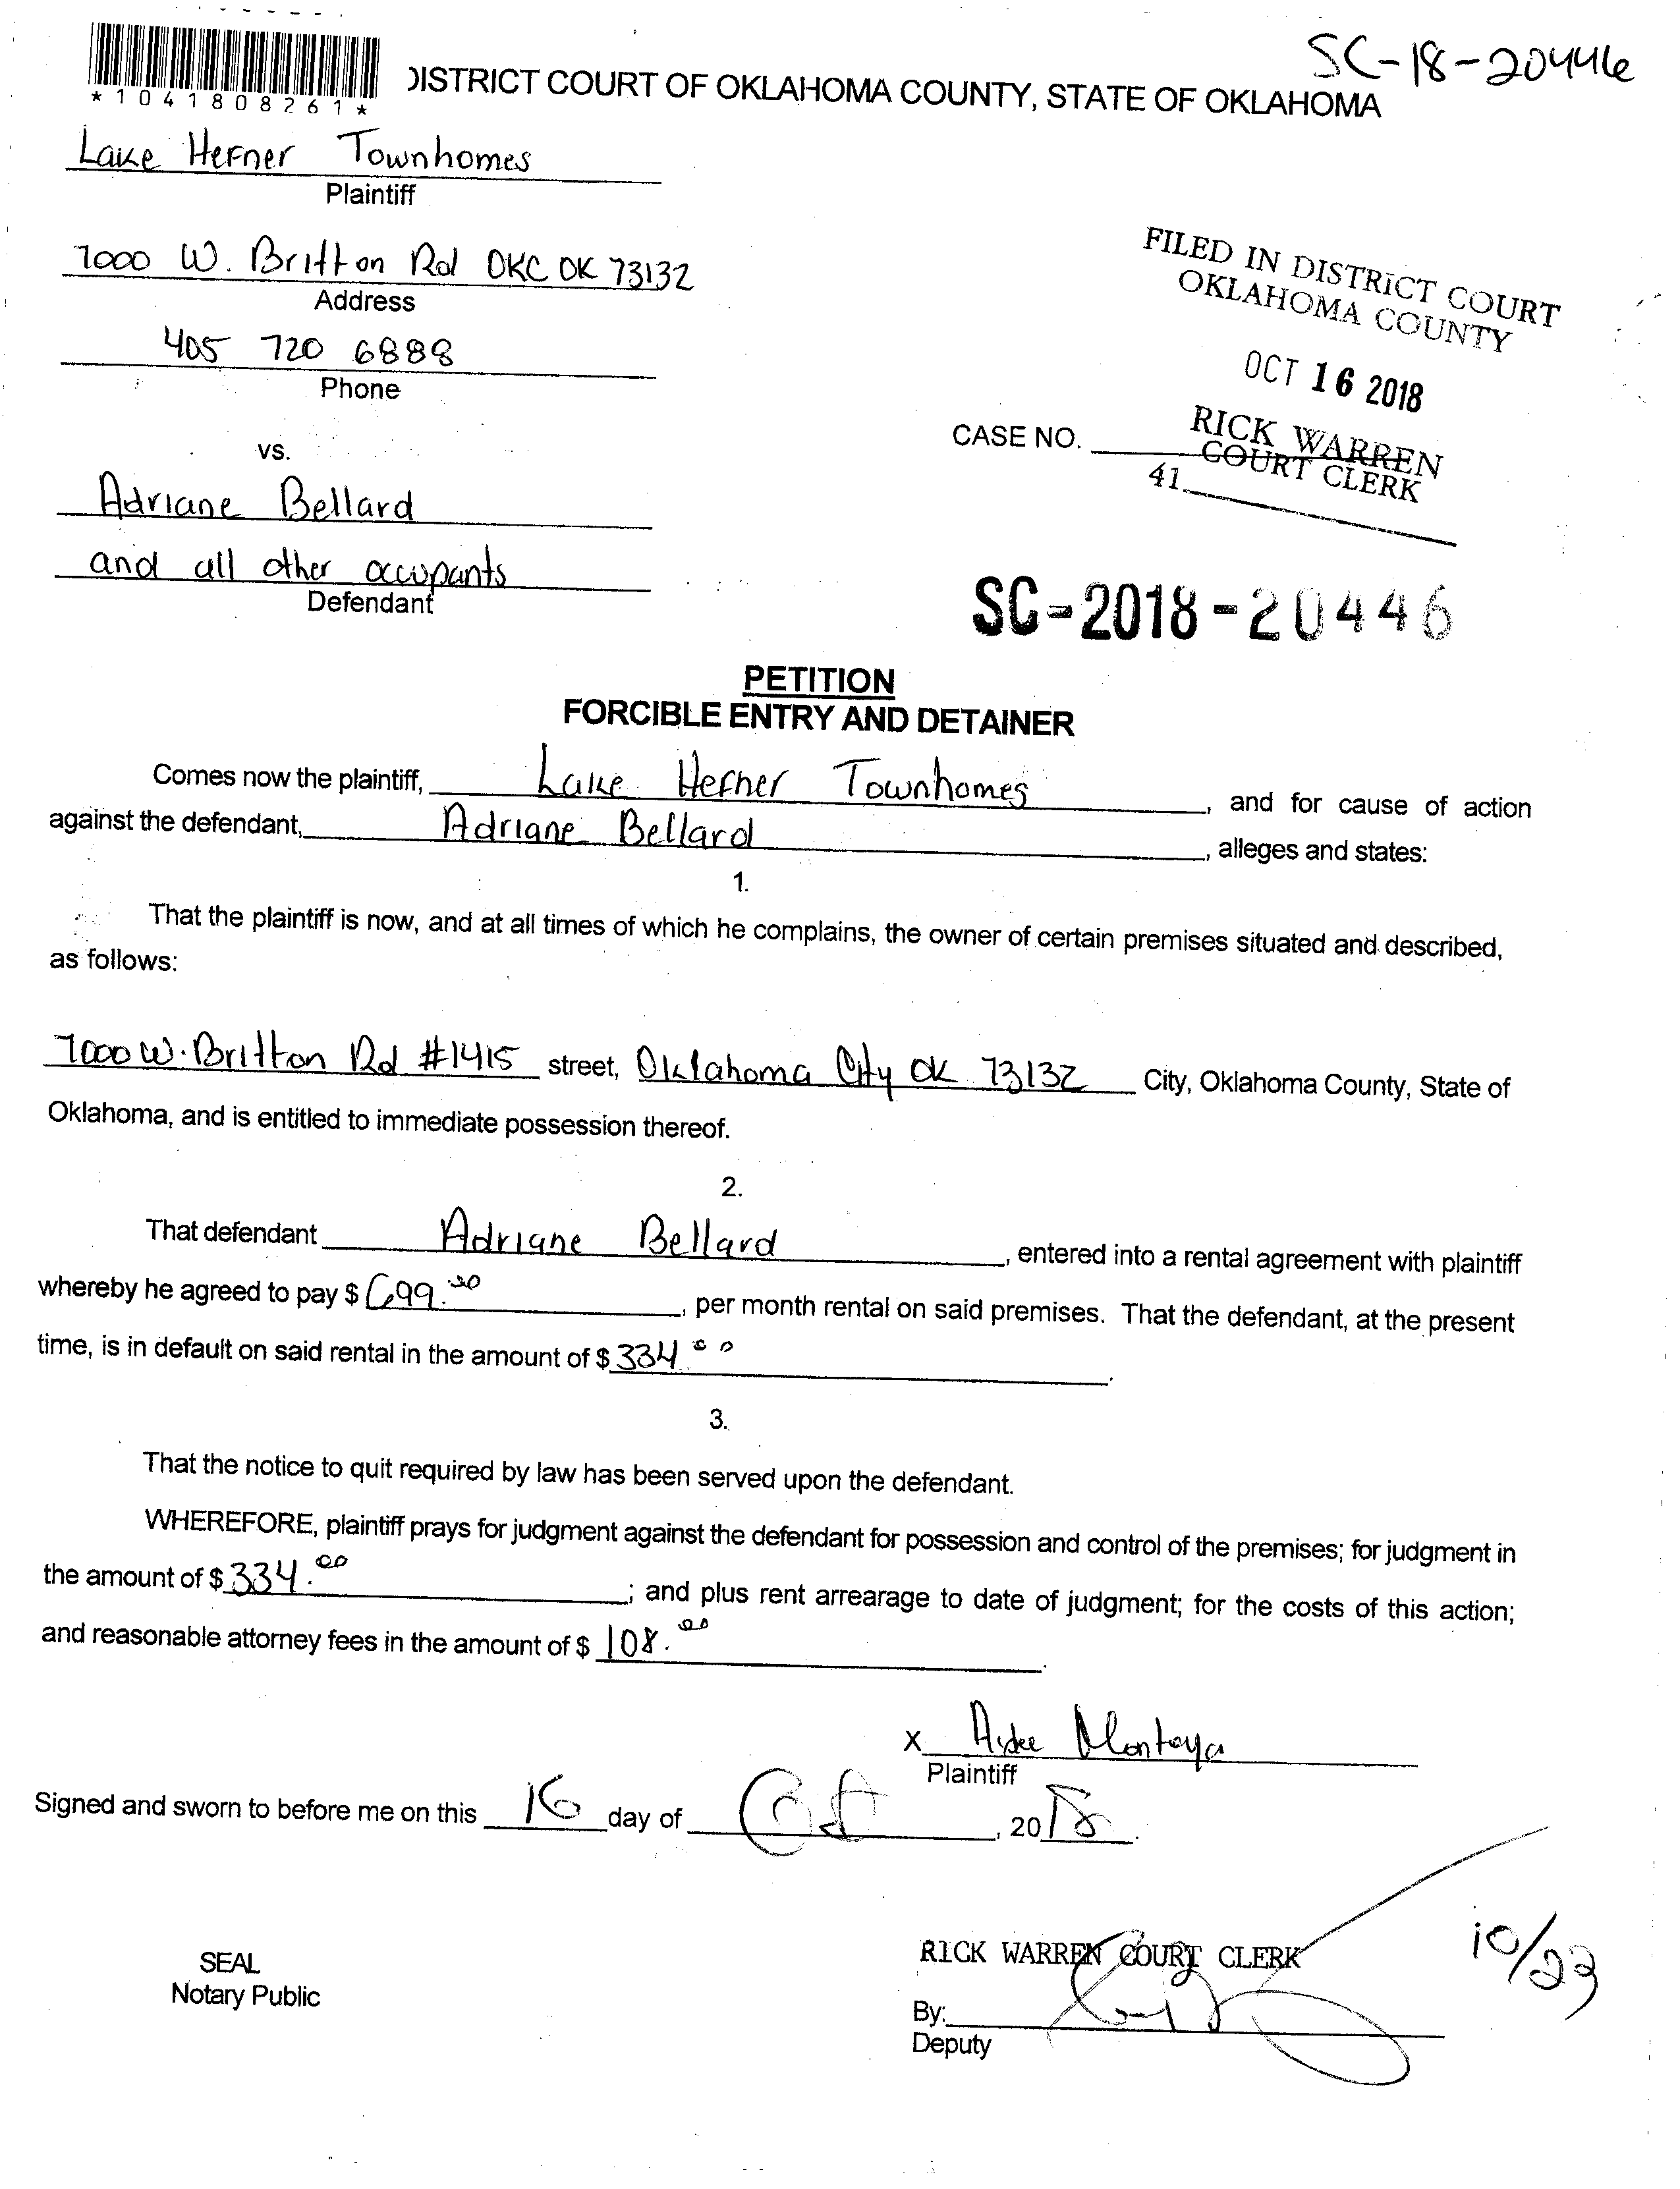 SC-18-20446
*1041808261*
DISTRICT COURT OF OKLAHOMA COUNTY, STATE OF OKLAHOMA
Lake Hefner Townhomes
Plaintiff
7000 W. Britton Rd OKC OK 73132
Address
405 720 6888
Phone
FILED IN DISTRICT COURT
OKLAHOMA COUNTY
OCT 16 2018
RICK WARREN
COURT CLERK
41
vs.
CASE NO.
Adriane Bellard
and all other occupants
Defendant
SC-2018-20446
PETITION
FORCIBLE ENTRY AND DETAINER
Comes now the plaintiff, Lake Hefner Townhomes, and for cause of action
against the defendant, Adriane Bellard, alleges and states:
1.
That the plaintiff is now, and at all times of which he complains, the owner of certain premises situated and described,
as follows:
7000 W. Britton Rd #1415 street, Oklahoma City OK 73132 City, Oklahoma County, State of
Oklahoma, and is entitled to immediate possession thereof.
2.
That defendant Adriane Bellard, entered into a rental agreement with plaintiff
whereby he agreed to pay $ 699.00, per month rental on said premises. That the defendant, at the present
time, is in default on said rental in the amount of $ 334.00.
3.
That the notice to quit required by law has been served upon the defendant.
WHEREFORE, plaintiff prays for judgment against the defendant for possession and control of the premises; for judgment in
the amount of $ 334.00; and plus rent arrearage to date of judgment; for the costs of this action;
and reasonable attorney fees in the amount of $ 108.00.
X Aidee Montoya
Plaintiff
Signed and sworn to before me on this 16 day of Oct, 2018.
SEAL
Notary Public
RICK WARREN COURT CLERK
By:
Deputy
10/23